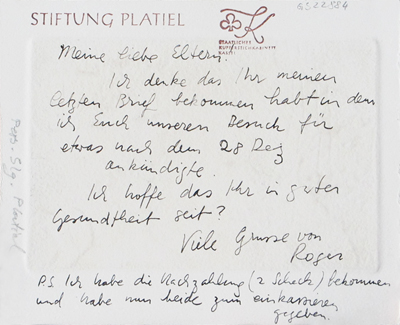 STIFTUNG PLATIEL
STAATLICHES
KUPFERSTICHKABINETT
Meine liebe Eltern!
Ich denke das Ihr meinen
letzten Brief bekommen habt in dem
ich Euch unseren Besuch für
etwas nach dem 28 Dez
ankündigte.
Ich hoffe das Ihr in guter
Gesundtheit seit?
Viele Grusse von
Roger
P.S. Ich habe die Nachzahlung (2 Scheck) bekommen
und habe nun beide zum einkassieren
gegeben.
Pers. Slg. Platiel